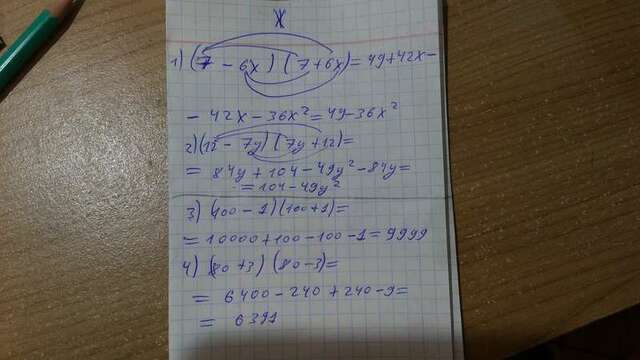 X
1) (7 - 6x) (7 + 6x) = 49 + 42x -
- 42x - 36x² = 49 - 36x²
2) (12 - 7y) (7y + 12) =
= 84y + 104 - 49y² - 84y =
= 104 - 49y²
3) (100 - 1) (100 + 1) =
= 10000 + 100 - 100 - 1 = 9999
4) (80 + 3) (80 - 3) =
= 6400 - 240 + 240 - 9 =
= 6391